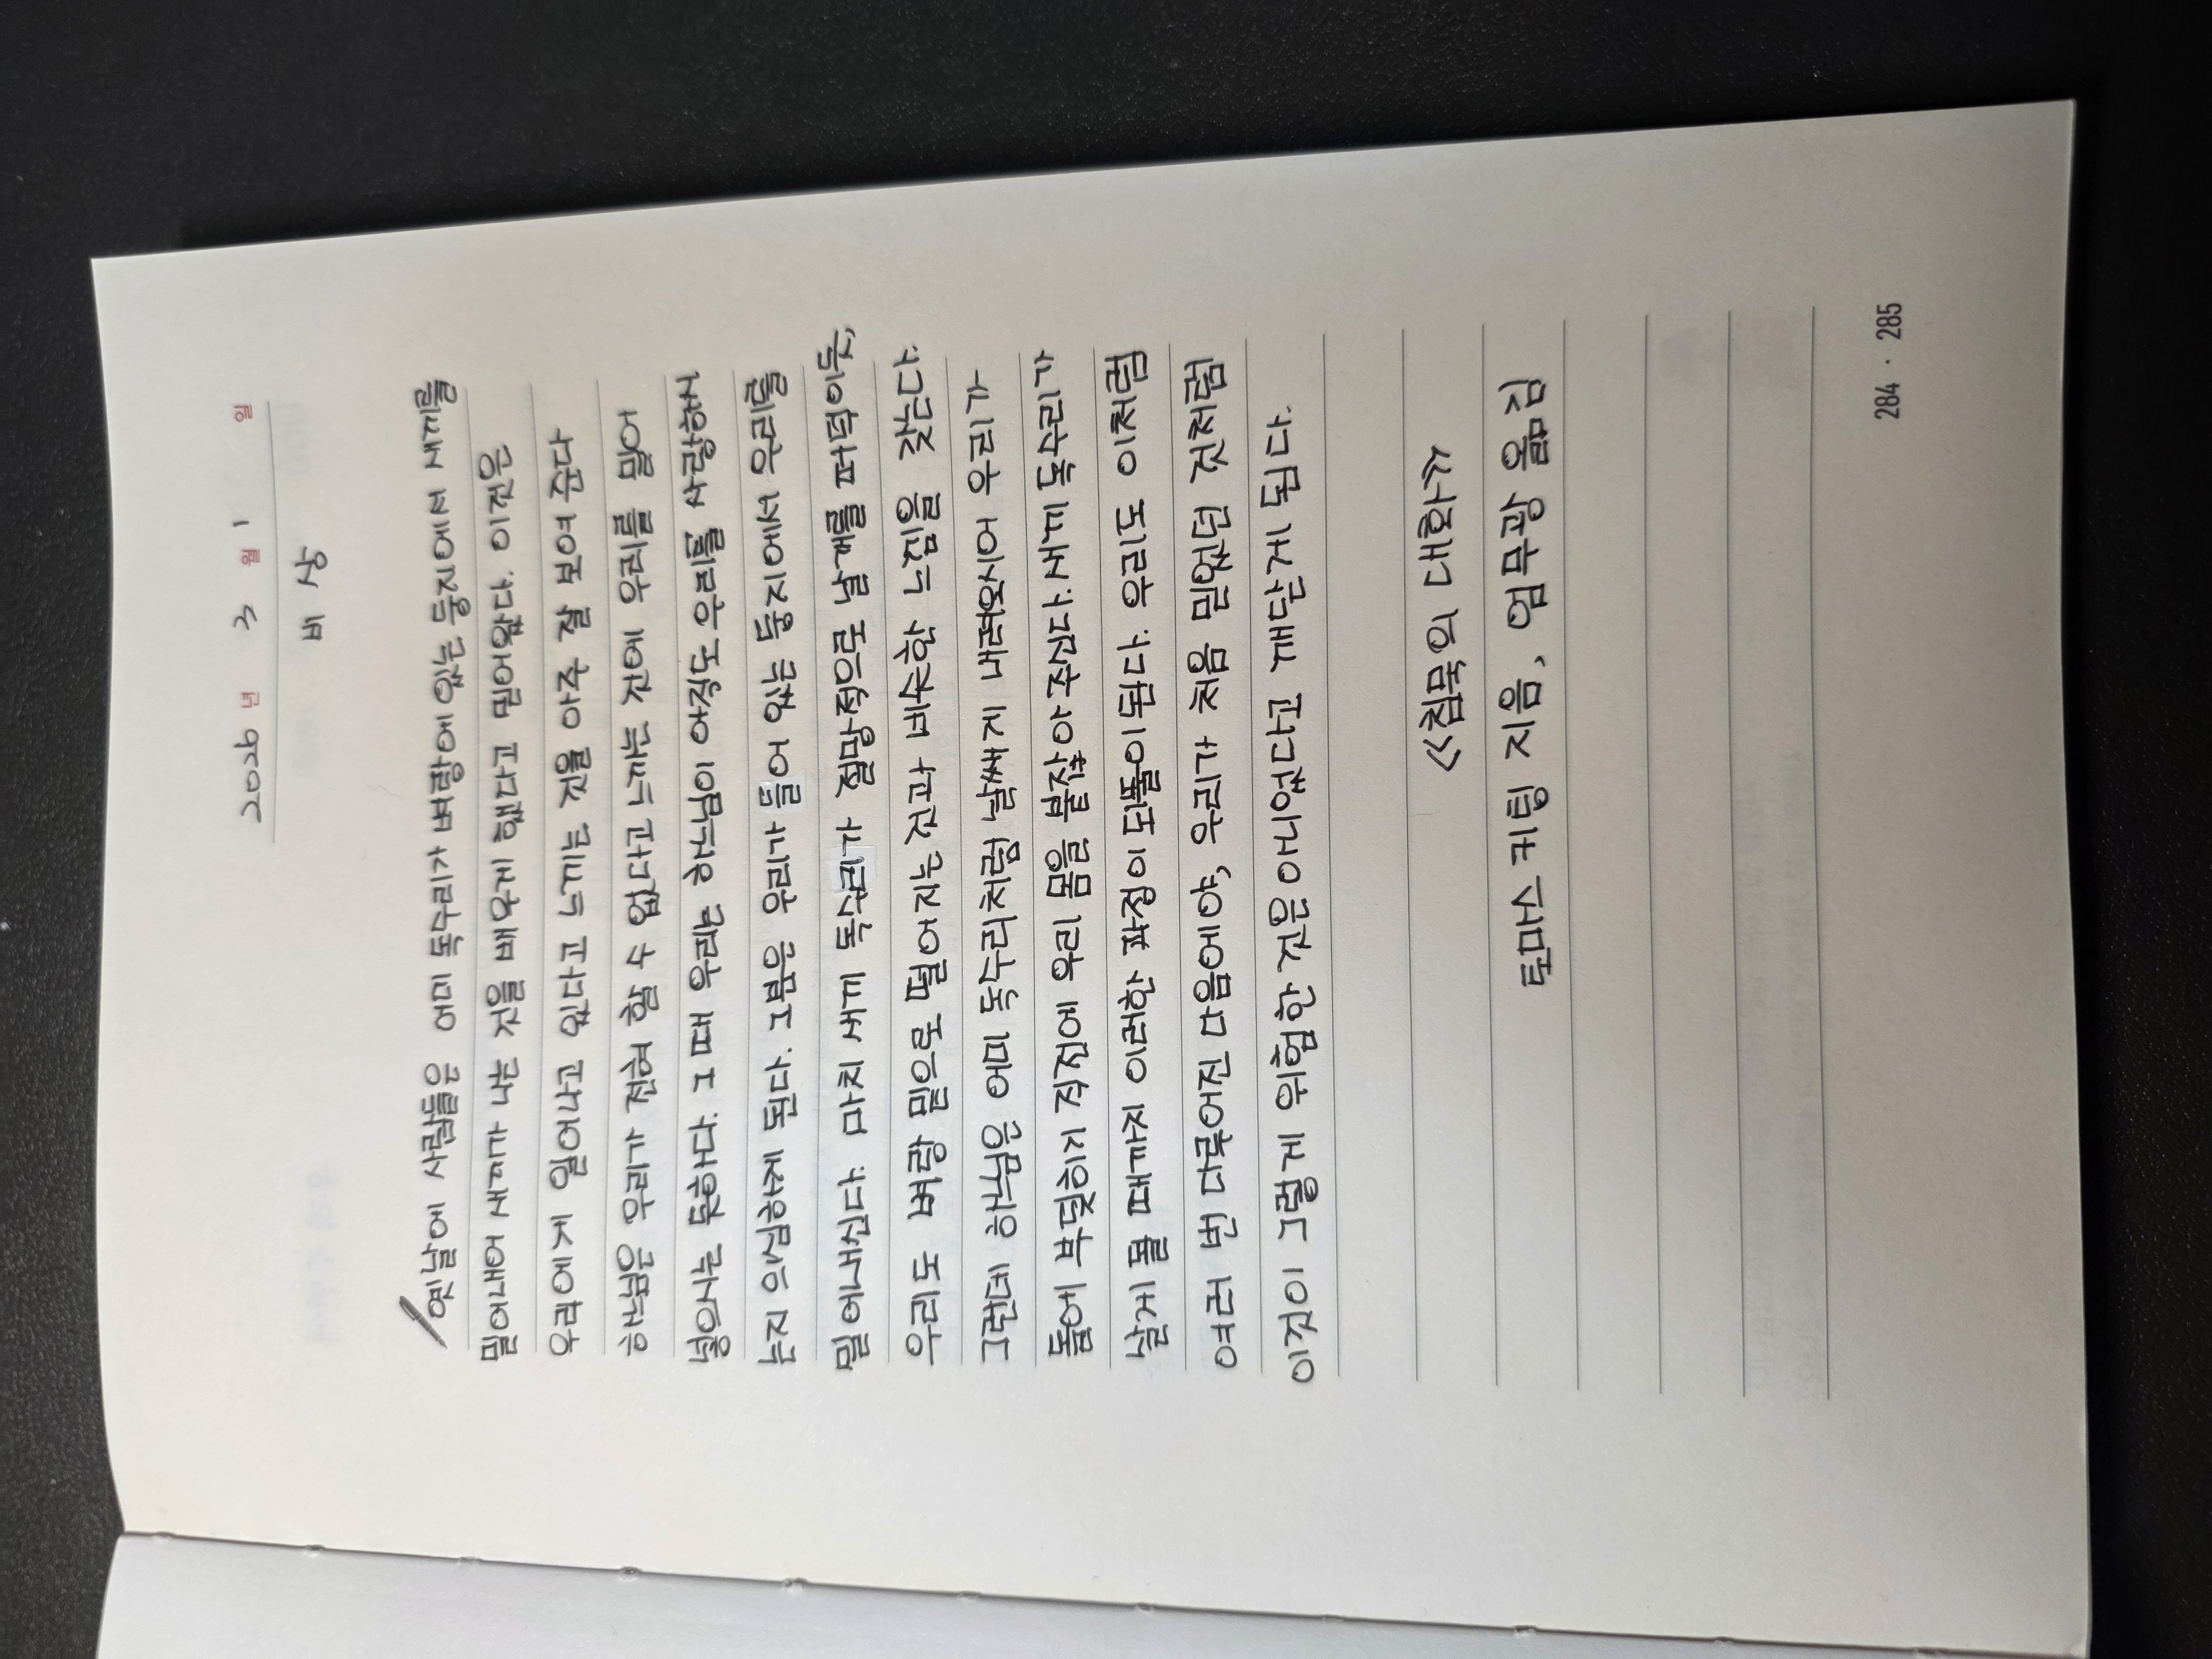 2029년 3월 1일
비상
옛날에 사람들은 어미 독수리가 벼랑에 있는 둥지에서 새끼를
밀어내어 새끼가 나는 것을 배우게 했다고 믿어왔다. 이것은
우리에게 일어나고 있다고 느끼는 것을 아주 잘 보여 준다
하느님은 우리가 전혀 할 수 없다고 느끼는 것에 우리를 밀어
넣으시는 듯하다. 그 때 우리는 하느님이 아직도 우리를 사랑하시
는지 의심하게 된다. 그분은 우리가 들어 있는 둥지에서 우리를
밀어내신다. 마치 새끼 독수리가 절망적으로 날개를 퍼덕이듯,
우리도 벼랑 밑으로 떨어지는 것과 비슷한 느낌을 갖는다.
그런데 하느님은 어미 독수리처럼 날쌔게 내려와시어 우리가
돌에 부딪히기 직전에 우리 몸을 붙잡아 주신다. 새끼 독수리가
날게 될 때까지 이러한 과정이 되풀이된다. 우리도 이처럼
여러 번 다뤄어진 다음에야, 우리가 처음 믿었던 것처럼
이것이 그렇게 위험한 것은 아니었다고 깨닫게 된다.
《침묵의 대화》
토마스 키팅 지음, 엄무광 옮김
284 · 285